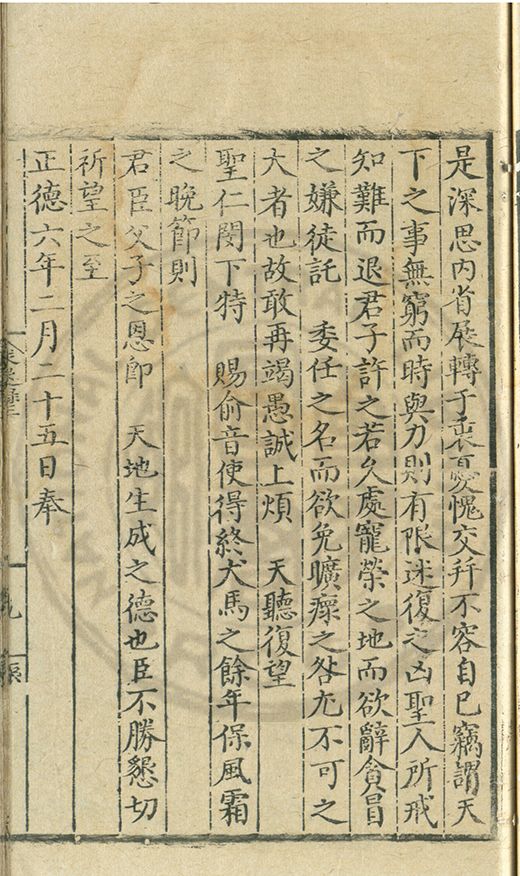 是深思内省展轉于衷憂愧交并不容自已竊謂天
下之事無窮而時與力則有限迷復之凶聖人所戒
知難而退君子許之若久處寵榮之地而欲辭貪冒
之嫌徒託　委任之名而欲免曠瘝之咎尤不可之
大者也故敢再竭愚誠上煩　天聽復望
聖仁閔下特　賜俞音使得終犬馬之餘年保風霜
之晚節則
君臣父子之恩即　天地生成之德也臣不勝懇切
祈望之至
正德六年二月二十五日奉